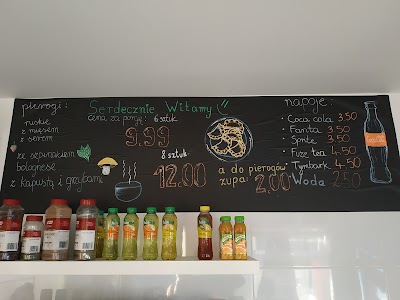 pierogi:
ruskie
z mięsem
z serem
ze szpinakiem
bolognese
z kapustą i grzybami
Serdecznie Witamy!
cena za porcję: 6 sztuk
9.99
8 sztuk
12.00
a do pierogów
zupa: 2,00
napoje:
• Coca cola 3.50
• Fanta 3.50
• Sprite 3.50
• Fuze tea 4.50
• Tymbark 4.50
Woda 2.50